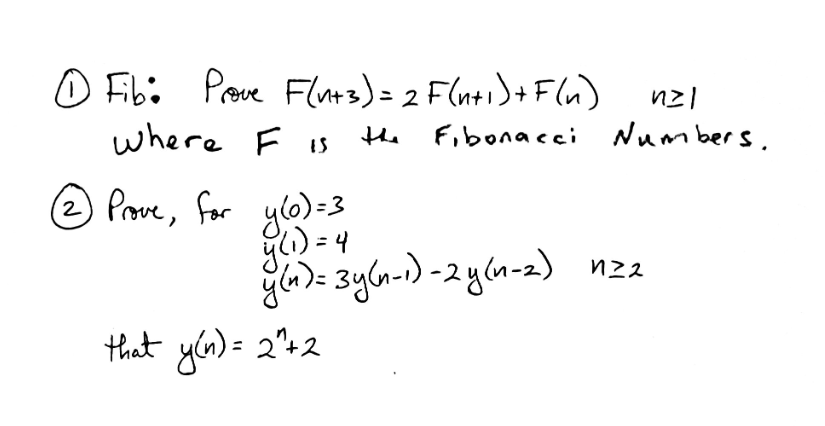 ① Fib: Prove F(n+3) = 2F(n+1) + F(n)    n≥1
Where F is the Fibonacci Numbers.
② Prove, for y(0)=3
y(1)=4
y(n)= 3y(n-1) - 2y(n-2)    n≥2
that y(n) = 2ⁿ+2